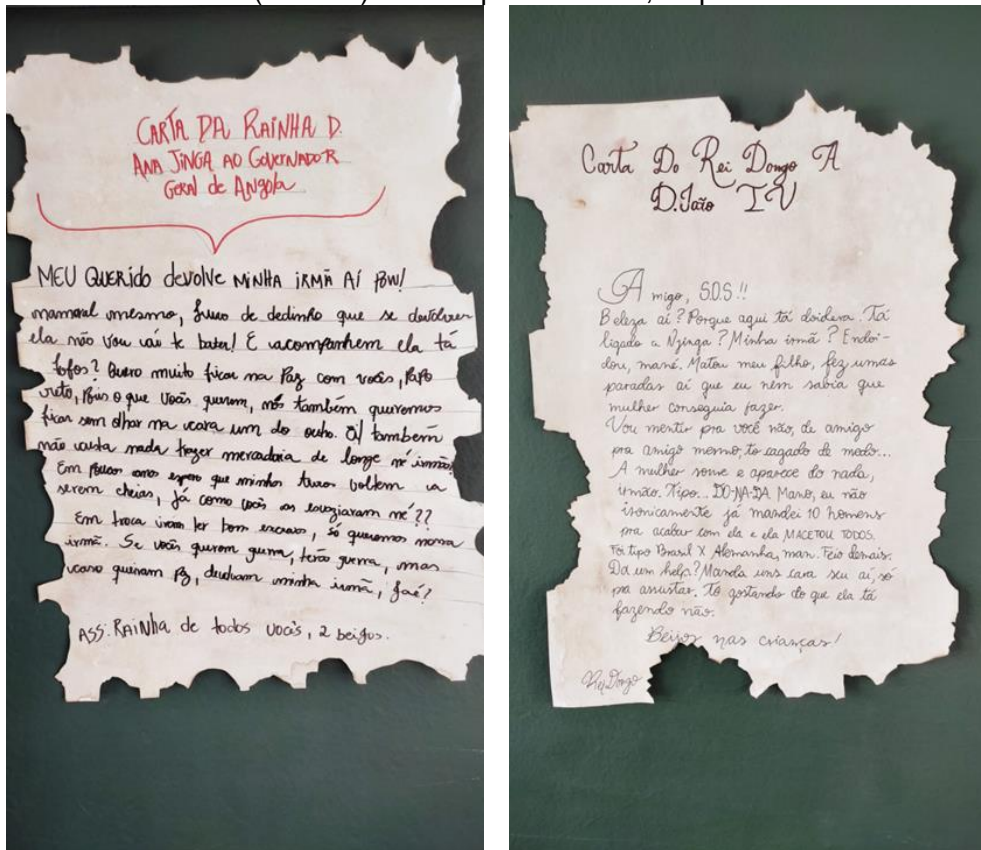 CARTA DA RAINHA D.
ANA JINGA AO GOVERNADOR
GERAL de ANgola
MEU QUERiDO devolve MiNHA iRMÃ AÍ POW!
mamoral mesmo, Juro de dedinho que se devolverem
ela não vou vai te bater! E acompanhem ela tá
fofos? Quero muito ficar na Paz com vocês, Papo
reto, Pois o que vocês querem, nós também queremos
ficar sem olhar na cara um do outro. também
não custa nada trazer mercadoria de longe né irmão?
Em poucos anos espero que minhas voltem a
serem cheias, já como vocês as né??
Em troca iram ter bom escravo, Só queremos nossa
irmã. Se vocês querem guerra, terão guerra, mas
caso queiram Pz, devolvam minha irmã, Jaé?
ASS: RAiNha de todos vocês, 2 beijos.
Carta Do Rei Dongo A
D.João IV
Amigo, S.O.S!!
Beleza aí? Porque aqui tá doidera. Tá
ligado a Nzinga? Minha irmã? Endoi-
dou, mané. Matou meu filho, fez umas
paradas aí que eu nem sabia que
mulher conseguia fazer.
Vou mentir pra você não, de amigo
pra amigo mermo, to cagado de medo...
A mulher some e aparece do nada,
irmão. Tipo... DO-NA-DA. Mano, eu não
ironicamente já mandei 10 homens
pra acabar com ela e ela MACETOU TODOS.
Foi tipo Brasil X Alemanha, man. Feio demais.
Da um help? Manda uns cara seu aí, só
pra assustar. To gostando do que ela tá
fazendo não.
Beijos nas crianças!
Rei Dongo